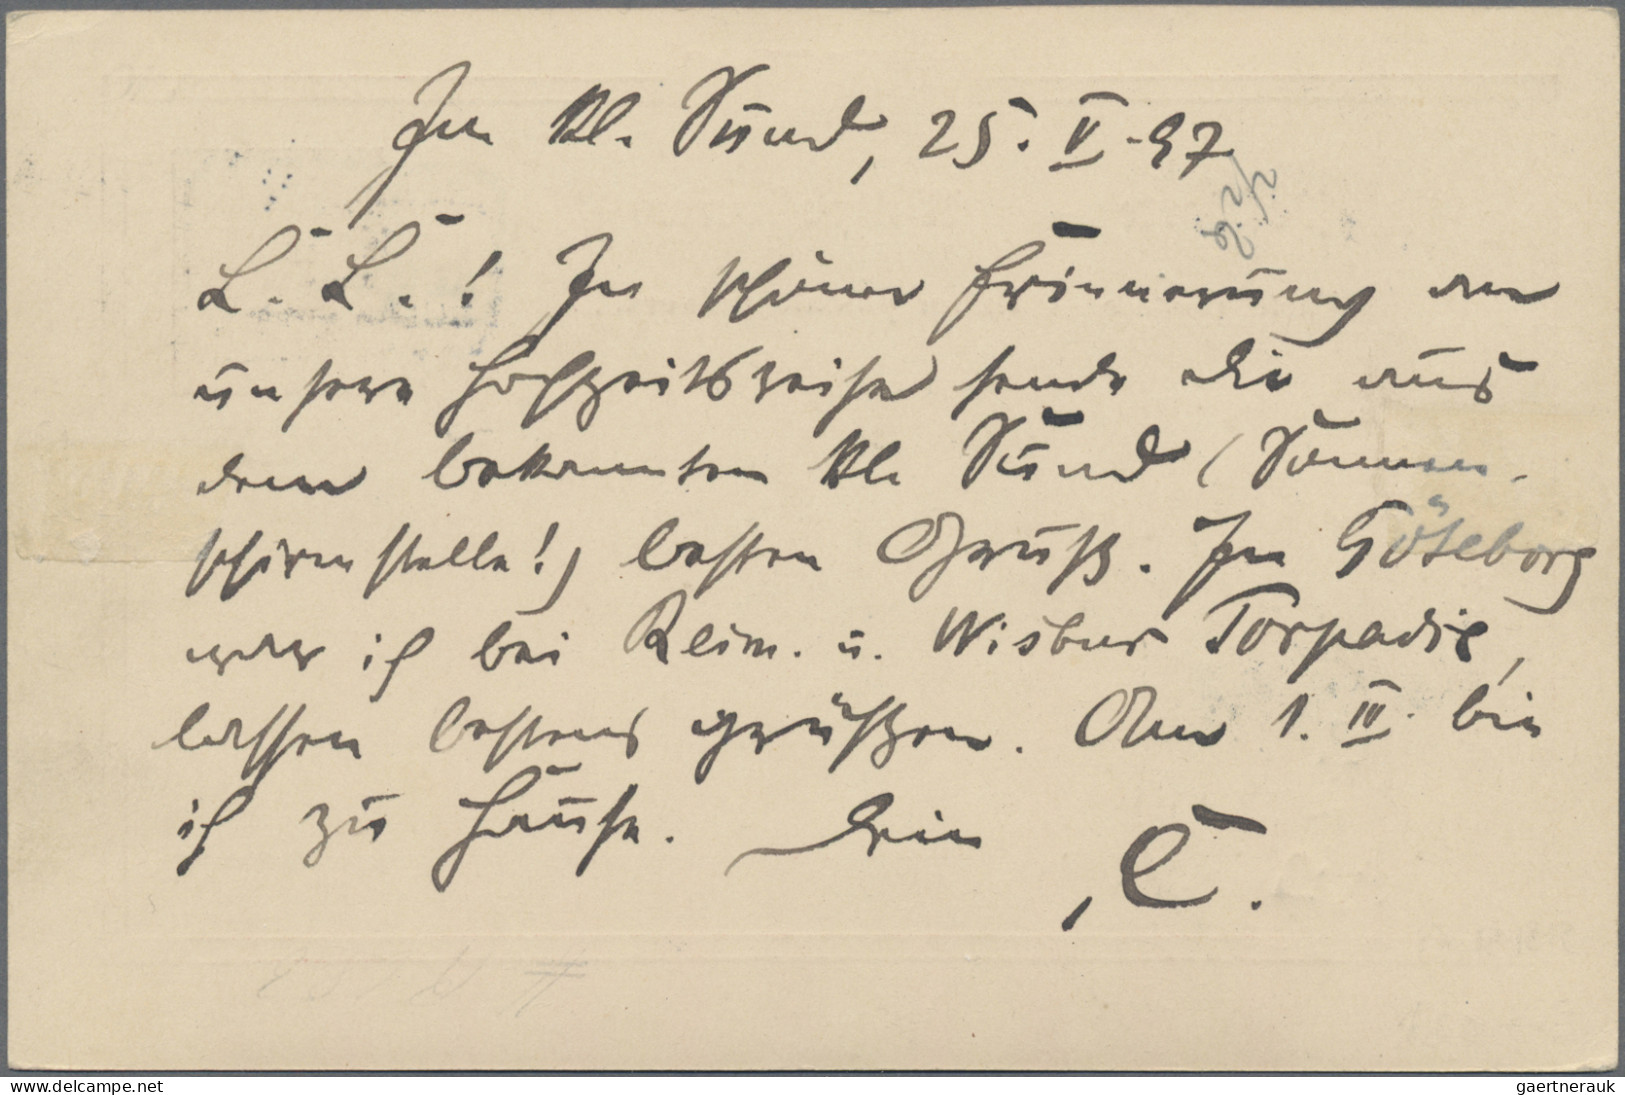 Im kl. Sund, 25. V. 97
L. L.! In schöner Erinnerung an
unsere Hochzeitsreise sende dir aus
dem bekannten kl. Sund (Sonnen-
schirmstelle!) besten Gruß. In Göteborg
war ich bei Reim. u. Wisbur Torpadie,
lassen bestens grüßen. Am 1. VI. bin
ich zu Hause. Dein
E.
www.delcampe.net
gaertnerauk